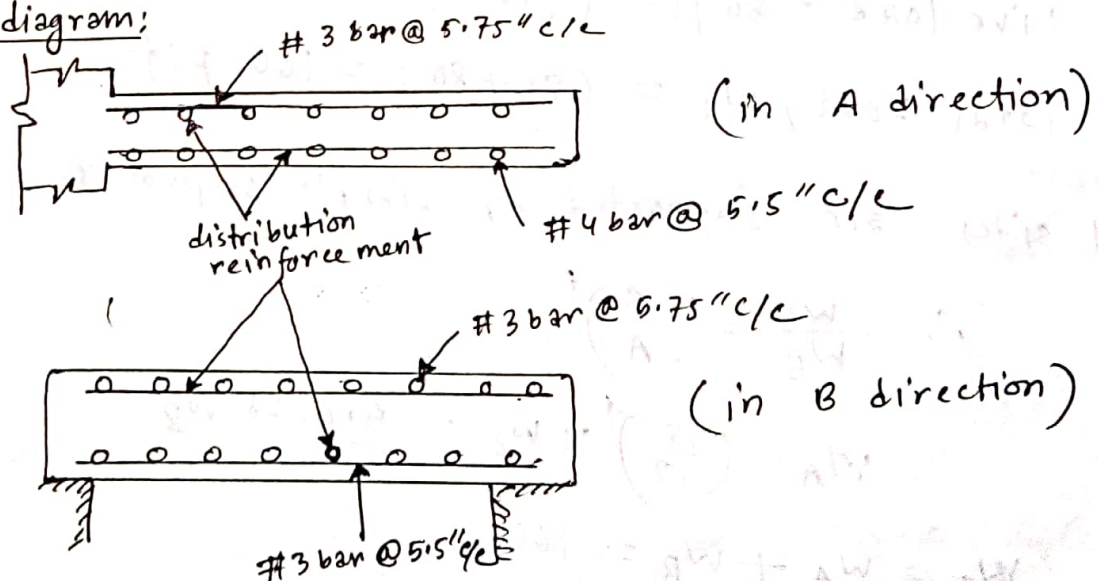 diagram:
# 3 bar @ 5.75" c/c
(in A direction)
# 4 bar @ 5.5" c/c
distribution
reinforcement
# 3 bar @ 5.75" c/c
(in B direction)
# 3 bar @ 5.5" c/c